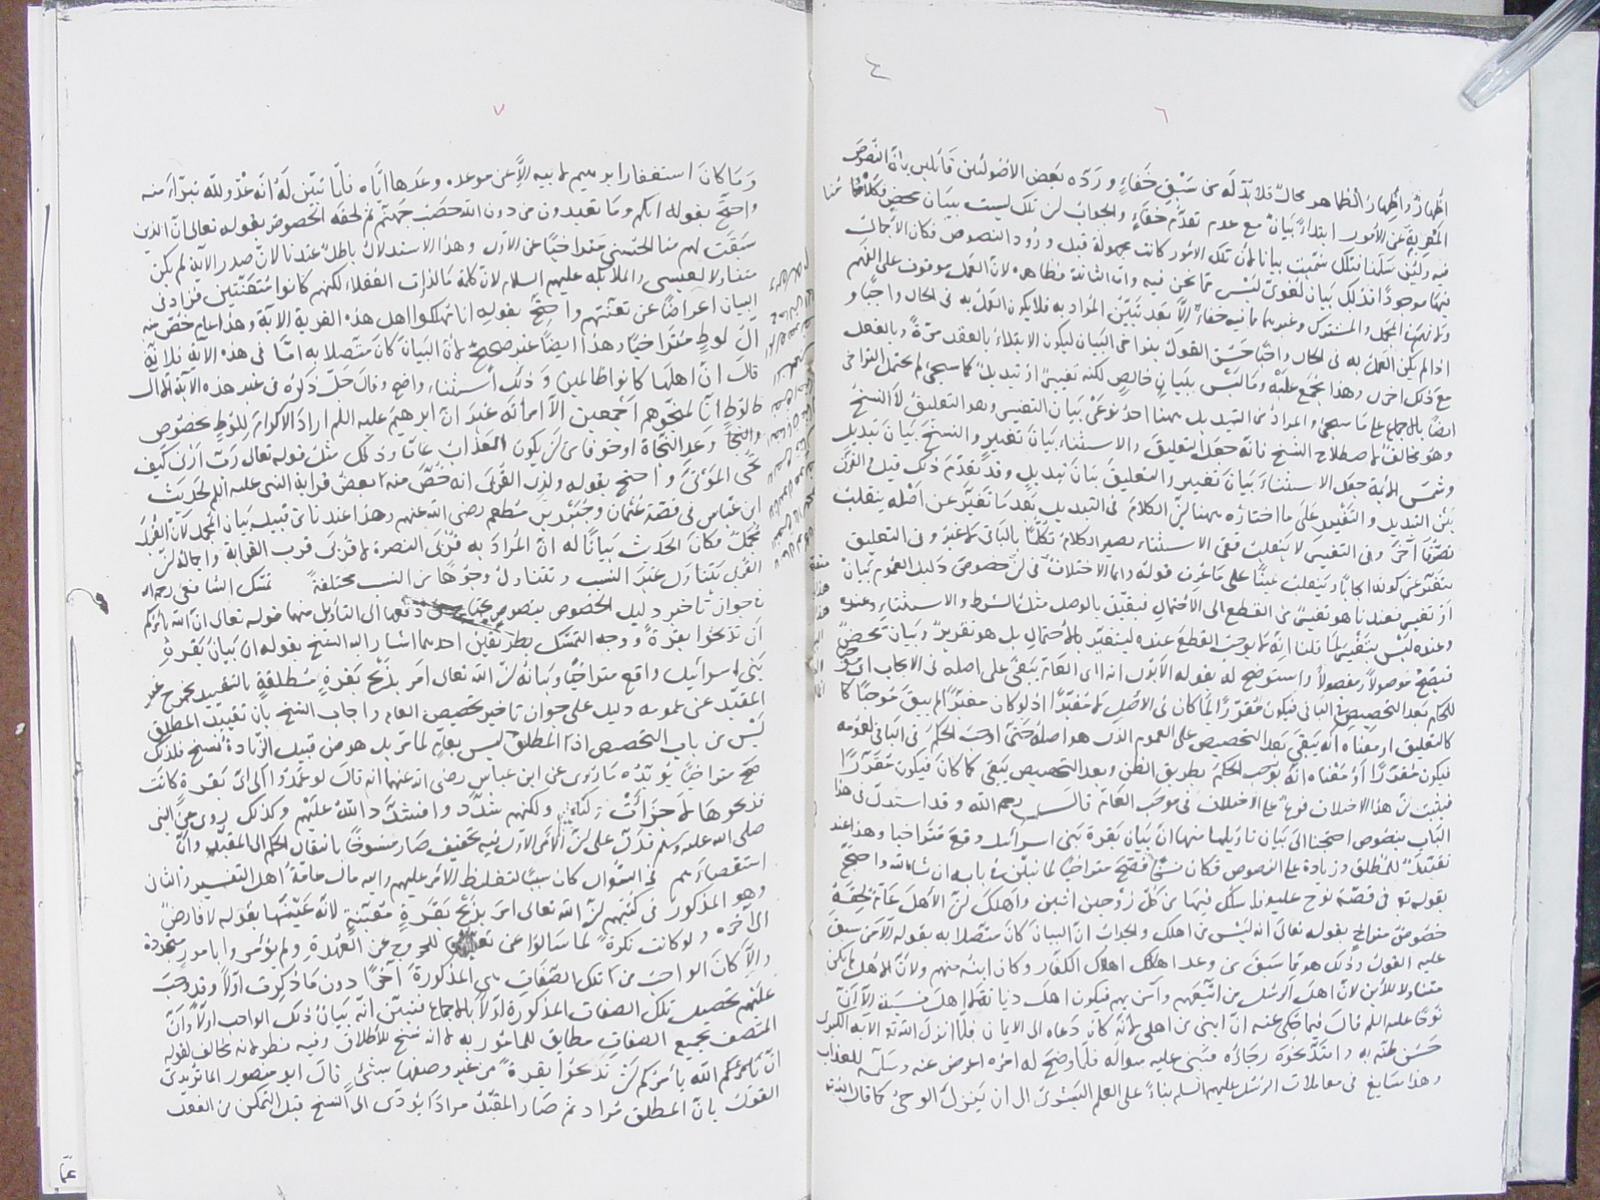 ٤
٦
اظهارٌ واظهار الظاهر محالٌ فلا بدّ له من سَبْقِ خَفاءٍ وردّه بعض الأصوليين قائلين بأنّ النصوص
المُعْرِبة عن الأمور ابتداءً بيانٌ مع عدم تقدّم خفاءٍ والجواب أن تلك ليست ببيان محض
فيه ولئن سلّمنا فتلك سُمّيت بيانا لأن تلك الأمور كانت مجهولة قبل ورود النصوص فكان الإجمال
فيها موجودًا فذلك بيان لغويّ ليس مما نحن فيه وأمّا الثانية فظاهر لأن العمل موقوف على الفهم
ولا فهم في المجمل والمشترك وغيرهما مما فيه خفاءٌ إلّا بعد تبيّن المراد به فلا يكون العمل به في الحال واجبًا و
اذا لم يكن العمل به في الحال واجبًا حَسُن القول بتراخي البيان ليكون الابتلاء بالعقد مرّةً وبالفعل
مع ذلك أخرى وهذا مُجمَع عليه وما ليس ببيانٍ خالصٍ لكنه تغييرٌ او تبديلٌ كما سيجيء لم يحتمل التراخي
ايضًا بالاجماع على ما سيجيء والمراد من التبديل ههنا احد نوعَيْ بيان التغيير وهو التعليق لا النسخ
وهو مخالف لاصطلاح الشيخ فانه جعل التعليق والاستثناء بيان تغييرٍ والنسخ بيان تبديل
وشمس الائمة جعل الاستثناء بيان تغيير والتعليق بيان تبديل وقد تقدّم ذلك قيل الفرق
بين التبديل والتغيير على ما اختاره ههنا أن الكلام في التبديل بعد ما تغيّر عن اصله ينقلب
تصرّفًا آخر وفي التغيير لا ينقلب ففي الاستثناء يصير الكلام تكلّمًا بالباقي لا غير وفي التعليق
يتغيّر عن كونه ايجابًا وينقلب يمينًا على ما عُرف قوله وانما الاختلاف في أن خصوص دليل العموم بيان
او تغيير فعندنا هو تغييرٌ من القطع الى الاحتمال فيتقيّد بالوصل مثل الشرط والاستثناء وعنده
وعنده ليس بتغيير لما قلنا انه لا يوجب القطع عنده ليتغيّر بالاحتمال بل هو تقريرٌ وبيان محضٌ
فيصحّ موصولًا ومفصولًا واستوضح له بقوله الا يرى انه اي العامّ يبقى على اصله في الايجاب اي
للحكم بعد التخصيص في الباقي فيكون مقرّرًا لما كان في الاصل لا مُغيّرًا اذ لو كان مغيّرًا لم يبق موجبًا كما
كالتعليق او معناه انه يبقى بعد التخصيص على العموم الذي هو اصله حتى اوجب الحكم في الباقي لعمومه
فيكون مقرّرًا او معناه انه يوجب الحكم بطريق الظن وبعد التخصيص يبقى كما كان فيكون مقرّرًا
فيثبت أن هذا الاختلاف فرعٌ على الاختلاف في موجب العام قال رحمه الله وقد استدلّ في هذا
الباب بنصوص احتجنا الى بيان تأويلها منها ان بيان بقرة بني اسرائيل وقع متراخيا وهذا عند
تقييدٌ للمطلق وزيادة على النصوص فكان نسخًا فصحّ متراخيًا لما نبيّن في بابه ان شاء الله واحتجّ
بقوله تع في قصّة نوح عليه السلام فاسلك فيها من كلّ زوجين اثنين واهلك أن الأهل عامٌ لحقه
خصوصٌ متراخٍ بقوله تعالى انه ليس من اهلك والجواب ان البيان كان متصلا به بقوله الا من سبق
عليه القول وذلك هو ما سبق من وعد اهلاك الكفار وكان ابنه منهم ولأن الاهل لم يكن
متناولا للابن لأن اهل الرسل من اتّبعهم وآمن بهم فيكون اهل ديانةٍ لا اهل نسبة الا ان
نوحًا عليه السلم قال فيما حكى عنه ان ابني من اهلي لأنه كان دعاه الى الايمان فلمّا انزل الله تع الآية الكبرى
حَسُن ظنّه به وامتدّ نحوه رجاؤه فبنى عليه سؤاله فلما وضح له امره اعرض عنه وسلّمه للعذاب
وهذا سايغ في معاملات الرسل عليهم السلم بناءً على العلم البشريّ الى ان ينزل الوحيُ كما قال الله
٧
وَمَا كَانَ استغفار ابرهيم لابيه الّا عن موعدة وعدها اياه فلمّا تبيّن له انه عدوّ لله تبرّأ منه
واحتجّ بقوله انكم وما تعبدون من دون الله حصب جهنّم ثم لحقه الخصوص بقوله تعالى انّ الذين
سبقت لهم منا الحسنى متراخيًا عن الاول وهذا الاستدلال باطل عندنا لأن صدر الآية لم يكن
متناولا لعيسى والملائكة عليهم السلام لأن كلمة ما لذوات غير العقلاء لكنهم كانوا متعنّتين فزاد في
البيان اعراضًا عن تعنّتهم واحتجّ بقوله انا مهلكوا اهل هذه القرية الآية وهذا عام خُصّ منه
آل لوطٍ متراخيًا وهذا ايضًا غير صحيح لأن البيان كان متصلا به امّا في هذه الآية فلانه
قال انّ اهلها كانوا ظالمين وذلك استثناء واضح وقال جلّ ذكره في غير هذه الآية الّا آل
لوط انّا لمنجّوهم اجمعين الّا امرأته غير انّ ابرهيم عليه السلم اراد الاكرام للوطٍ بخصوص
وعد النجاة او خوفا من أن يكون العذاب عامّا وذلك مثل قوله تعالى ربّ ارني كيف
تحي الموتى واحتجّ بقوله ولذي القربى انه خُصّ منه بعض قرابة النبي عليه السلم بحديث
ابن عباس في قصّة عثمان وجبير بن مطعم رضي الله عنهم وهذا عندنا من قبيل بيان المجمل لأن القربى
مجملٌ فكان الحديث بيانًا له انّ المراد به قربى النصرة لا قربى قرب القرابة واجماله أن
القربى يتناول غير النسب ويتناول وجوهًا من النسب مختلفةً تمسّك الشافعي رحمه الله
في جواز تأخير دليل الخصوص بنصوص يحتاج دفعها الى التأويل منها قوله تعالى انّ الله يأمركم
ان تذبحوا بقرةً ووجه التمسّك بطريقين احدهما اشار اليه الشيخ بقوله انّ بيان بقرة
بني اسرائيل واقع متراخيًا وبيانه أن الله تعالى امر بذبح بقرةٍ مطلقةٍ بالتقييد يخرج غير
المقيّد عن عمومه دليل على جواز تأخير تخصيص العام واجاب الشيخ بأن تقييد المطلق
ليس من باب التخصيص اذ المطلق ليس بعامّ لما مرّ بل هو من قبيل الزيادة نسخ فلذلك
صحّ متراخيًا يؤيّده ما روي عن ابن عباس رضى الله عنهما انه قال لو عمدوا الى ايّ بقرةٍ كانت
فذبحوها لأجزأت عنهم ولكنهم شدّدوا فشدّد الله عليهم وكذلك روي عن النبي
صلى الله عليه وسلم فدلّ على أن الأمر الأول فيه تخفيف صار منسوخًا بانتقال الحكم الى المقيّد وانّ
استقصاءهم في السؤال كان سببًا لتغليظ الأمر عليهم واليه مال عامّة اهل التفسير والثاني
وهو المذكور في كتبهم أن الله تعالى امر بذبح بقرةٍ معيّنةٍ لأنه عيّنها بقوله لا فارضٌ
الى آخره ولو كانت نكرةً لما سألوا عن تعيينها للخروج عن العهدة ولم يؤمروا بأمور متجددة
والّا كان الواجب من تلك الصفات هي المذكورة آخرًا دون ما ذكرت اوّلًا وقد وجب
عليهم تحصيل تلك الصفات المذكورة اوّلًا بالاجماع فتبيّن انّه بيان ذلك الواجب اوّلًا وانّ
المتّصف بجميع الصفات مطابق للمأمور به لا انه نسخ للاطلاق وفيه نظر لأنه مخالف لقوله
انّ الله يأمركم أن تذبحوا بقرةً من غير وصفها بشيء قال ابو منصور الماتريديّ
القول بأنّ المطلق مراد ثم صار المقيّد مرادًا يؤدّي الى النسخ قبل التمكّن من الفعل